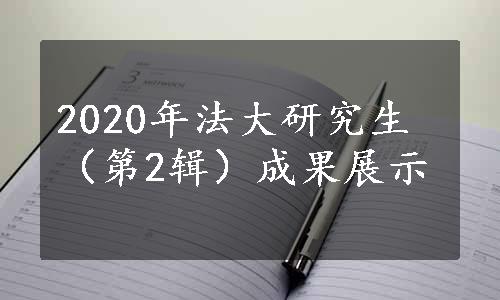 3 MITTWOCH
2020年法大研究生
（第2辑）成果展示